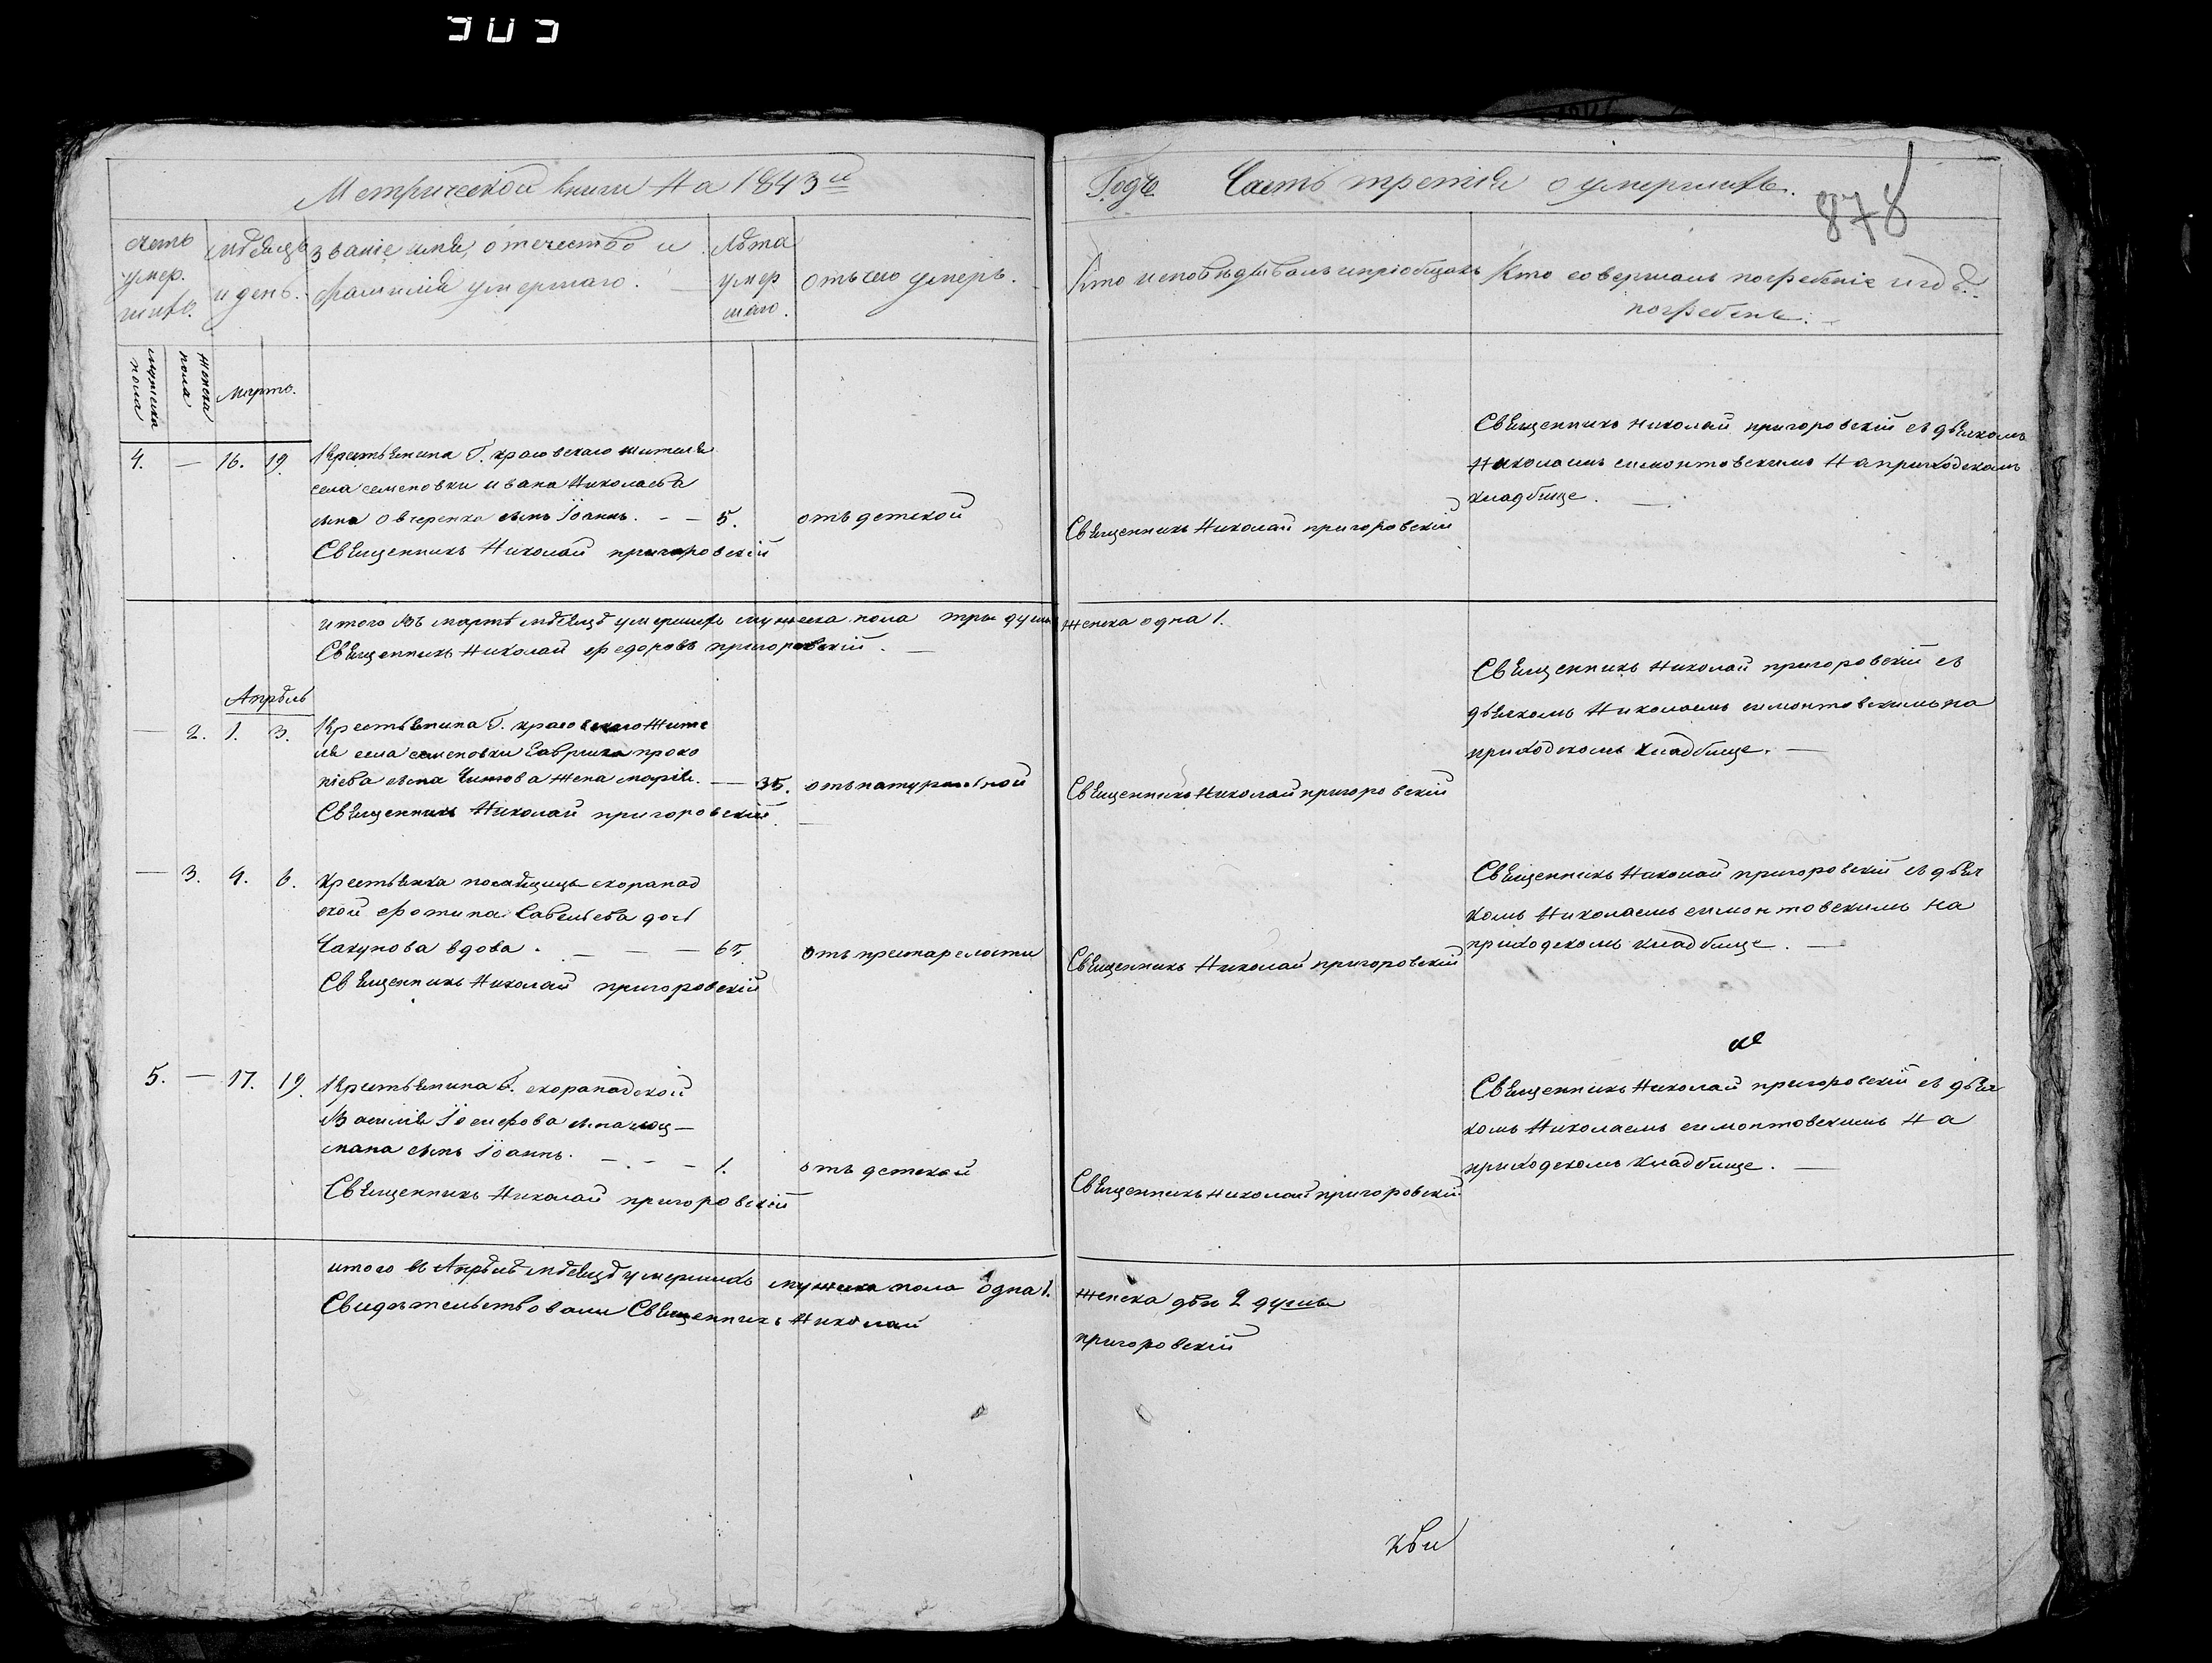 303
Метрической книги На 1843й
Годъ Часть третія о умершихъ.
878
счетъ умер. шихъ.
мѣсяцъ и день.
званіе имя, отечество и фамилія умершаго.
Лѣта умер шаго.
отъ чего умеръ.
Кто исповѣдывалъ и пріобщалъ
Кто совершалъ погребеніе и гдѣ погребенъ.
мужеска пола
женска пола
Мартъ.
4. — 16. 19.
Крестьянина Г. краговскаго жителя
села семеновки ивана Николаева
сына овчеренка сынъ Іоаннъ. - - 5. отъ детской
Священникъ Николай пригоровскій
Священникъ Николай пригоровскій
Священникъ николай пригоровскій съ дьячкомъ
Николаемъ симонтовскимъ На приходскомъ
кладбище.
итого Въ мартѣ мѣсяцѣ умершихъ мужеска пола три души женска одна 1.
Священникъ Николай федоровъ пригоровскій.
Апрѣль
— 2. 1. 3.
Крестьянина Г. краговскаго Жите
ля села семеновки Гаврила проко
піева сына жена марія. — 35. отъ натуральной
Священникъ Николай пригоровскій
Священникъ Николай пригоровскій
Священникъ Николай пригоровскій съ
дьячкомъ Николаемъ симонтовскимъ на
приходскомъ кладбище.
— 3. 4. 6.
крестьянка помѣщицы скоропад
ской фотина Савельева дочь
Чакунова вдова. — — — 65. отъ престарелости
Священникъ Николай пригоровскій
Священникъ Николай пригоровскій
Священникъ Николай пригоровскій съ дьяч
комъ Николаемъ симонтовскимъ на
приходскомъ кладбище.
5. — 17. 19.
Крестьянина Г. скоропадской
Василія Іосифова сына лоц—
мана сынъ Іоаннъ. — - - 1. отъ детской
Священникъ Николай пригоровскій
Священникъ Николай пригоровскій
Священникъ Николай пригоровскій съ дьяч
комъ Николаемъ симонтовскимъ На
приходскомъ кладбище.
итого въ Апрѣлѣ мѣсяцѣ умершихъ мужеска пола одна 1. женска двѣ 2 души
Свидѣтельствовали Священникъ Николай пригоровскій